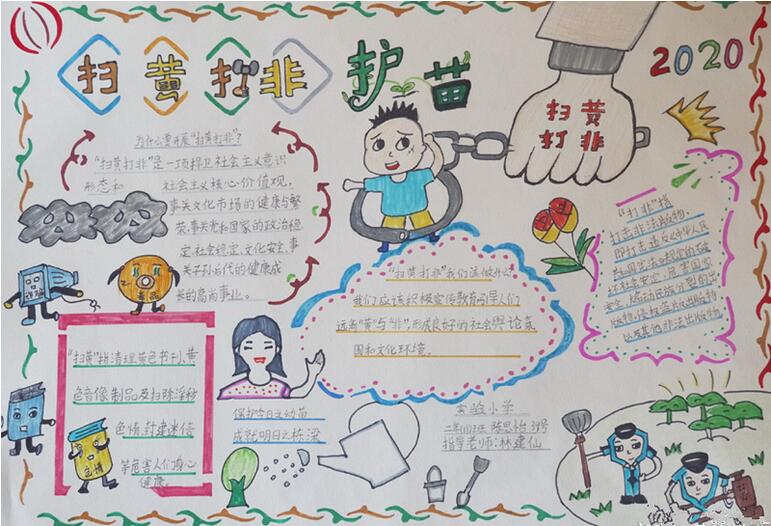 扫黄打非 护苗
2020
扫黄
打非
为什么要开展"扫黄打非"?
"扫黄打非"是一项捍卫社会主义意识
形态和 社会主义核心价值观,
事关文化市场的健康与繁
荣,事关党和国家的政治稳
定、社会稳定、文化安全、事
关子孙后代的健康成
长的高尚事业。
"扫黄打非"我们该做什么?
我们应该积极宣传教育引导人们
远离"黄"与"非",形成良好的社会舆论氛
围和文化环境。
"打非"指
打击非法出版物,
即打击违反《中华人民
共和国宪法》规定的破
坏社会安定、危害国家
安全、煽动民族分裂的出
版物,侵权盗版出版物
以及其他非法出版物
毒品
"扫黄"指清理黄色书刊、黄
色音像制品及扫除淫秽
色情、封建迷信
等危害人们身心
健康。
色情
保护今日之幼苗
成就明日之栋梁
实验小学
陈思怡
指导老师:林建仙